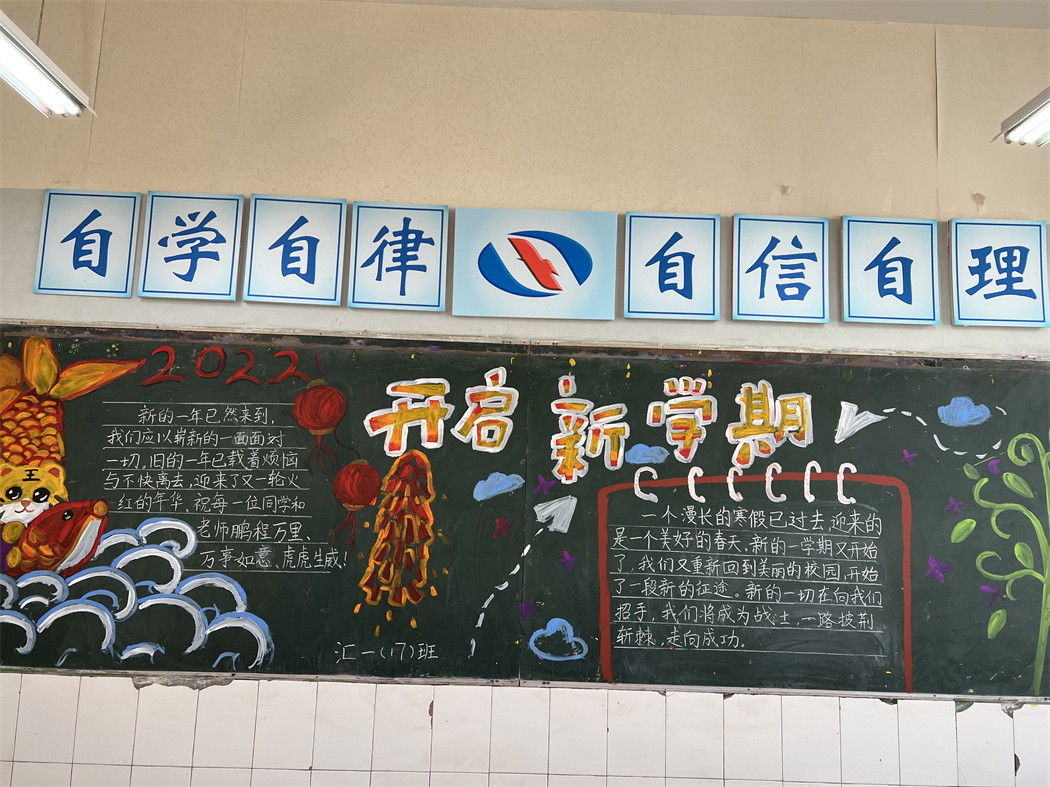 自学自律 自信自理
2022
开启新学期
新的一年已然来到,
我们应以崭新的一面面对
一切,旧的一年已载着烦恼
与不快离去,迎来了又一轮火
红的年华,祝每一位同学和
老师鹏程万里、
万事如意、虎虎生威!
王
汇一(17)班
一个漫长的寒假已过去,迎来的
是一个美好的春天,新的一学期又开始
了,我们又重新回到美丽的校园,开始
了一段新的征途。新的一切在向我们
招手,我们将成为战士,一路披荆
斩棘,走向成功。